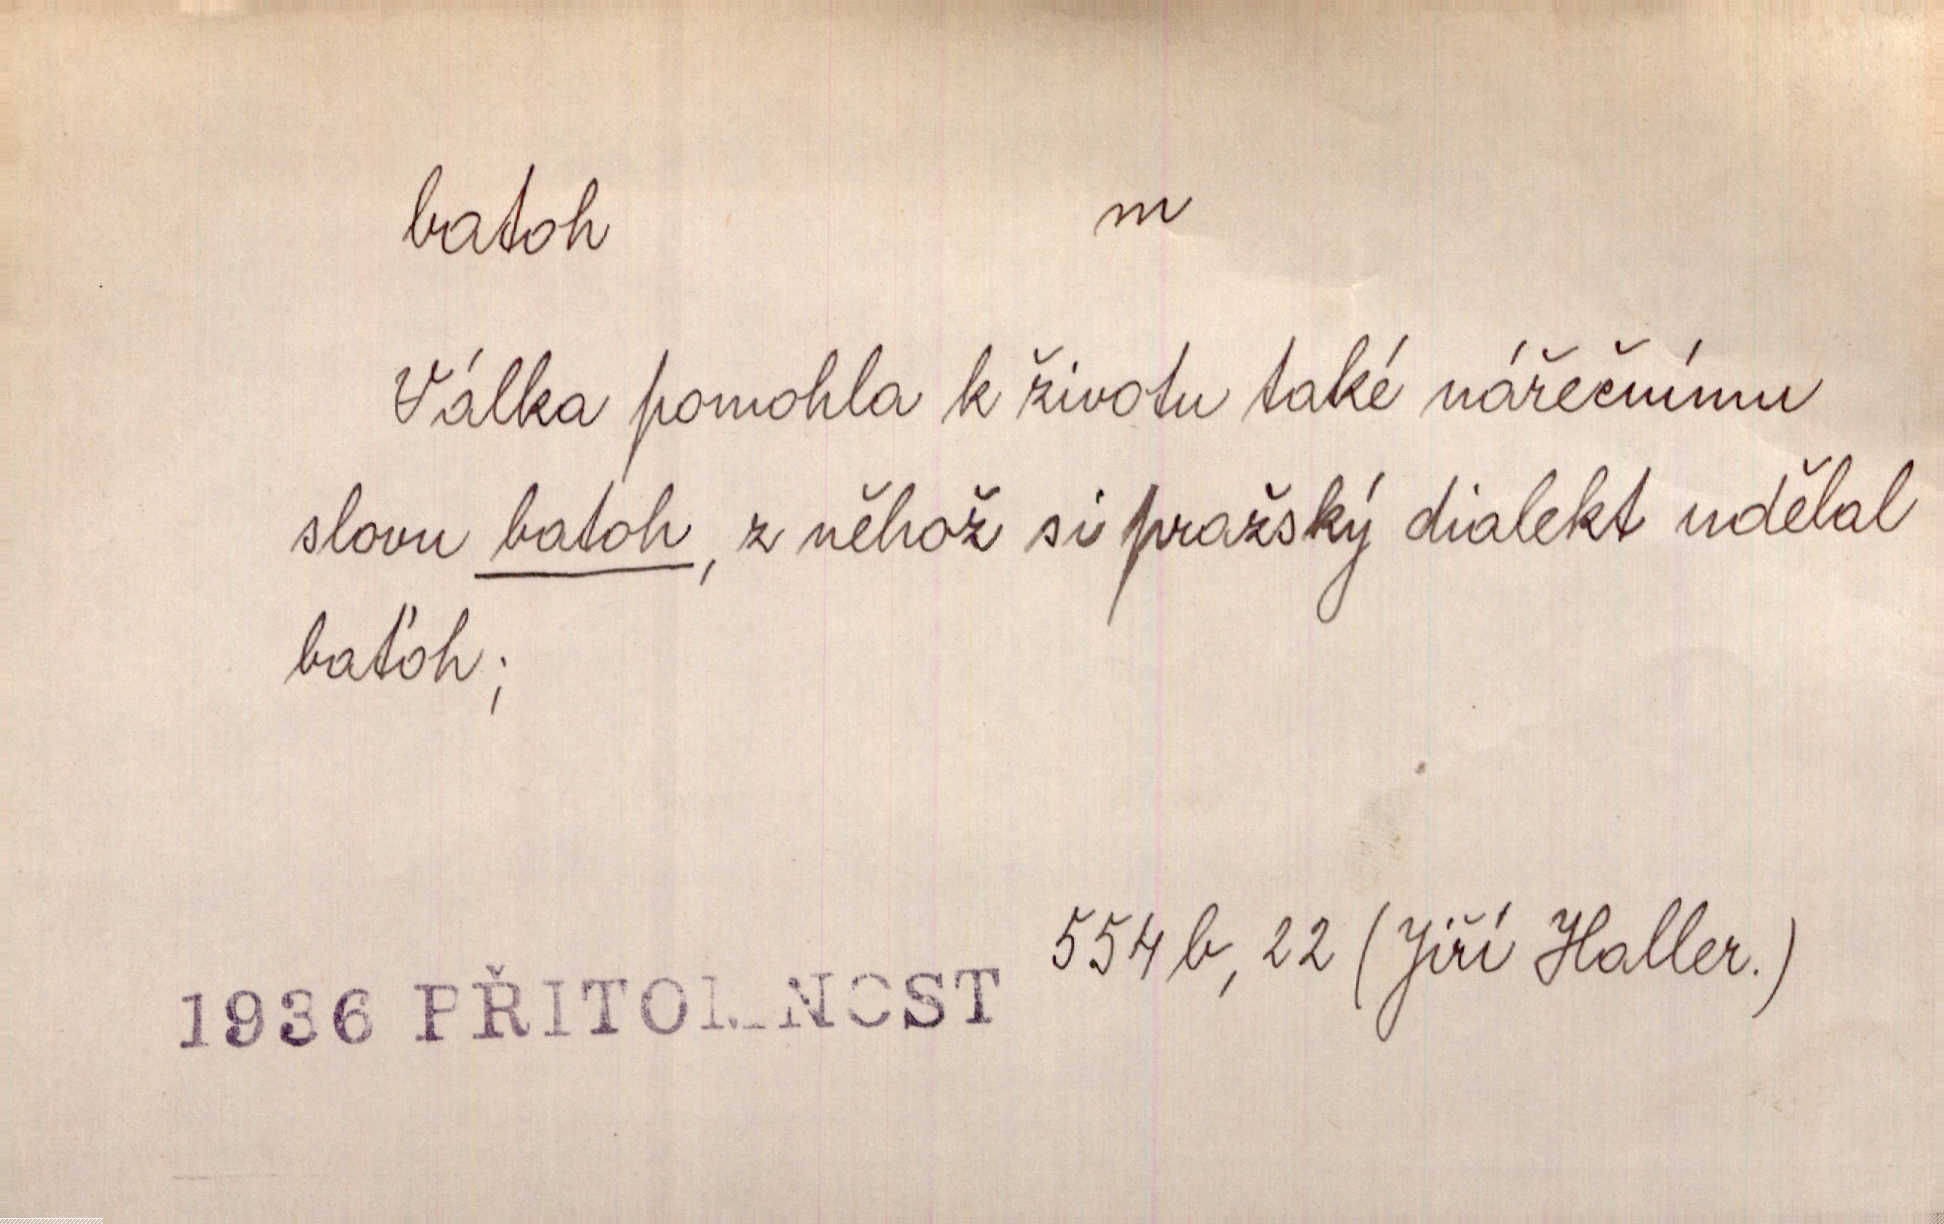 batoh m
Válka pomohla k životu také nářečnímu
slovu batoh, z něhož si pražský dialekt udělal
baťoh;
554 b, 22 (Jiří Haller.)
1936 PŘITOMNOST